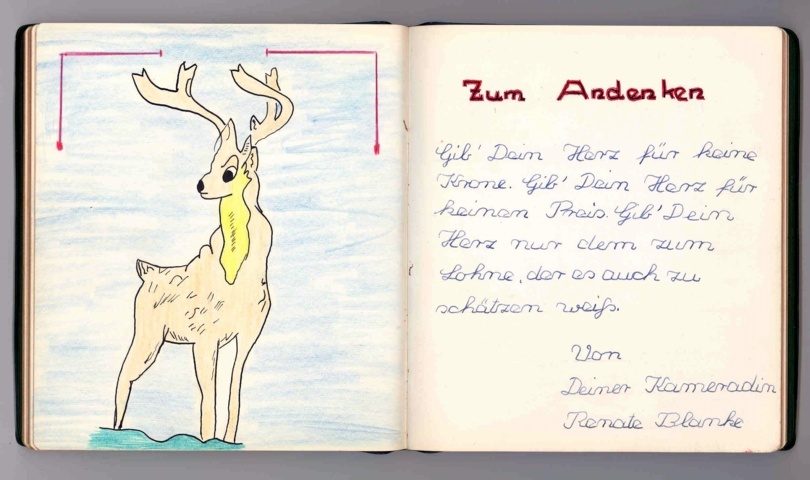 Zum Andenken
Gib' Dein Herz für keine
Krone. Gib' Dein Herz für
keinen Preis. Gib' Dein
Herz nur dem zum
Lohne, der es auch zu
schätzen weiß.
Von
Deiner Kameradin
Renate Blanke